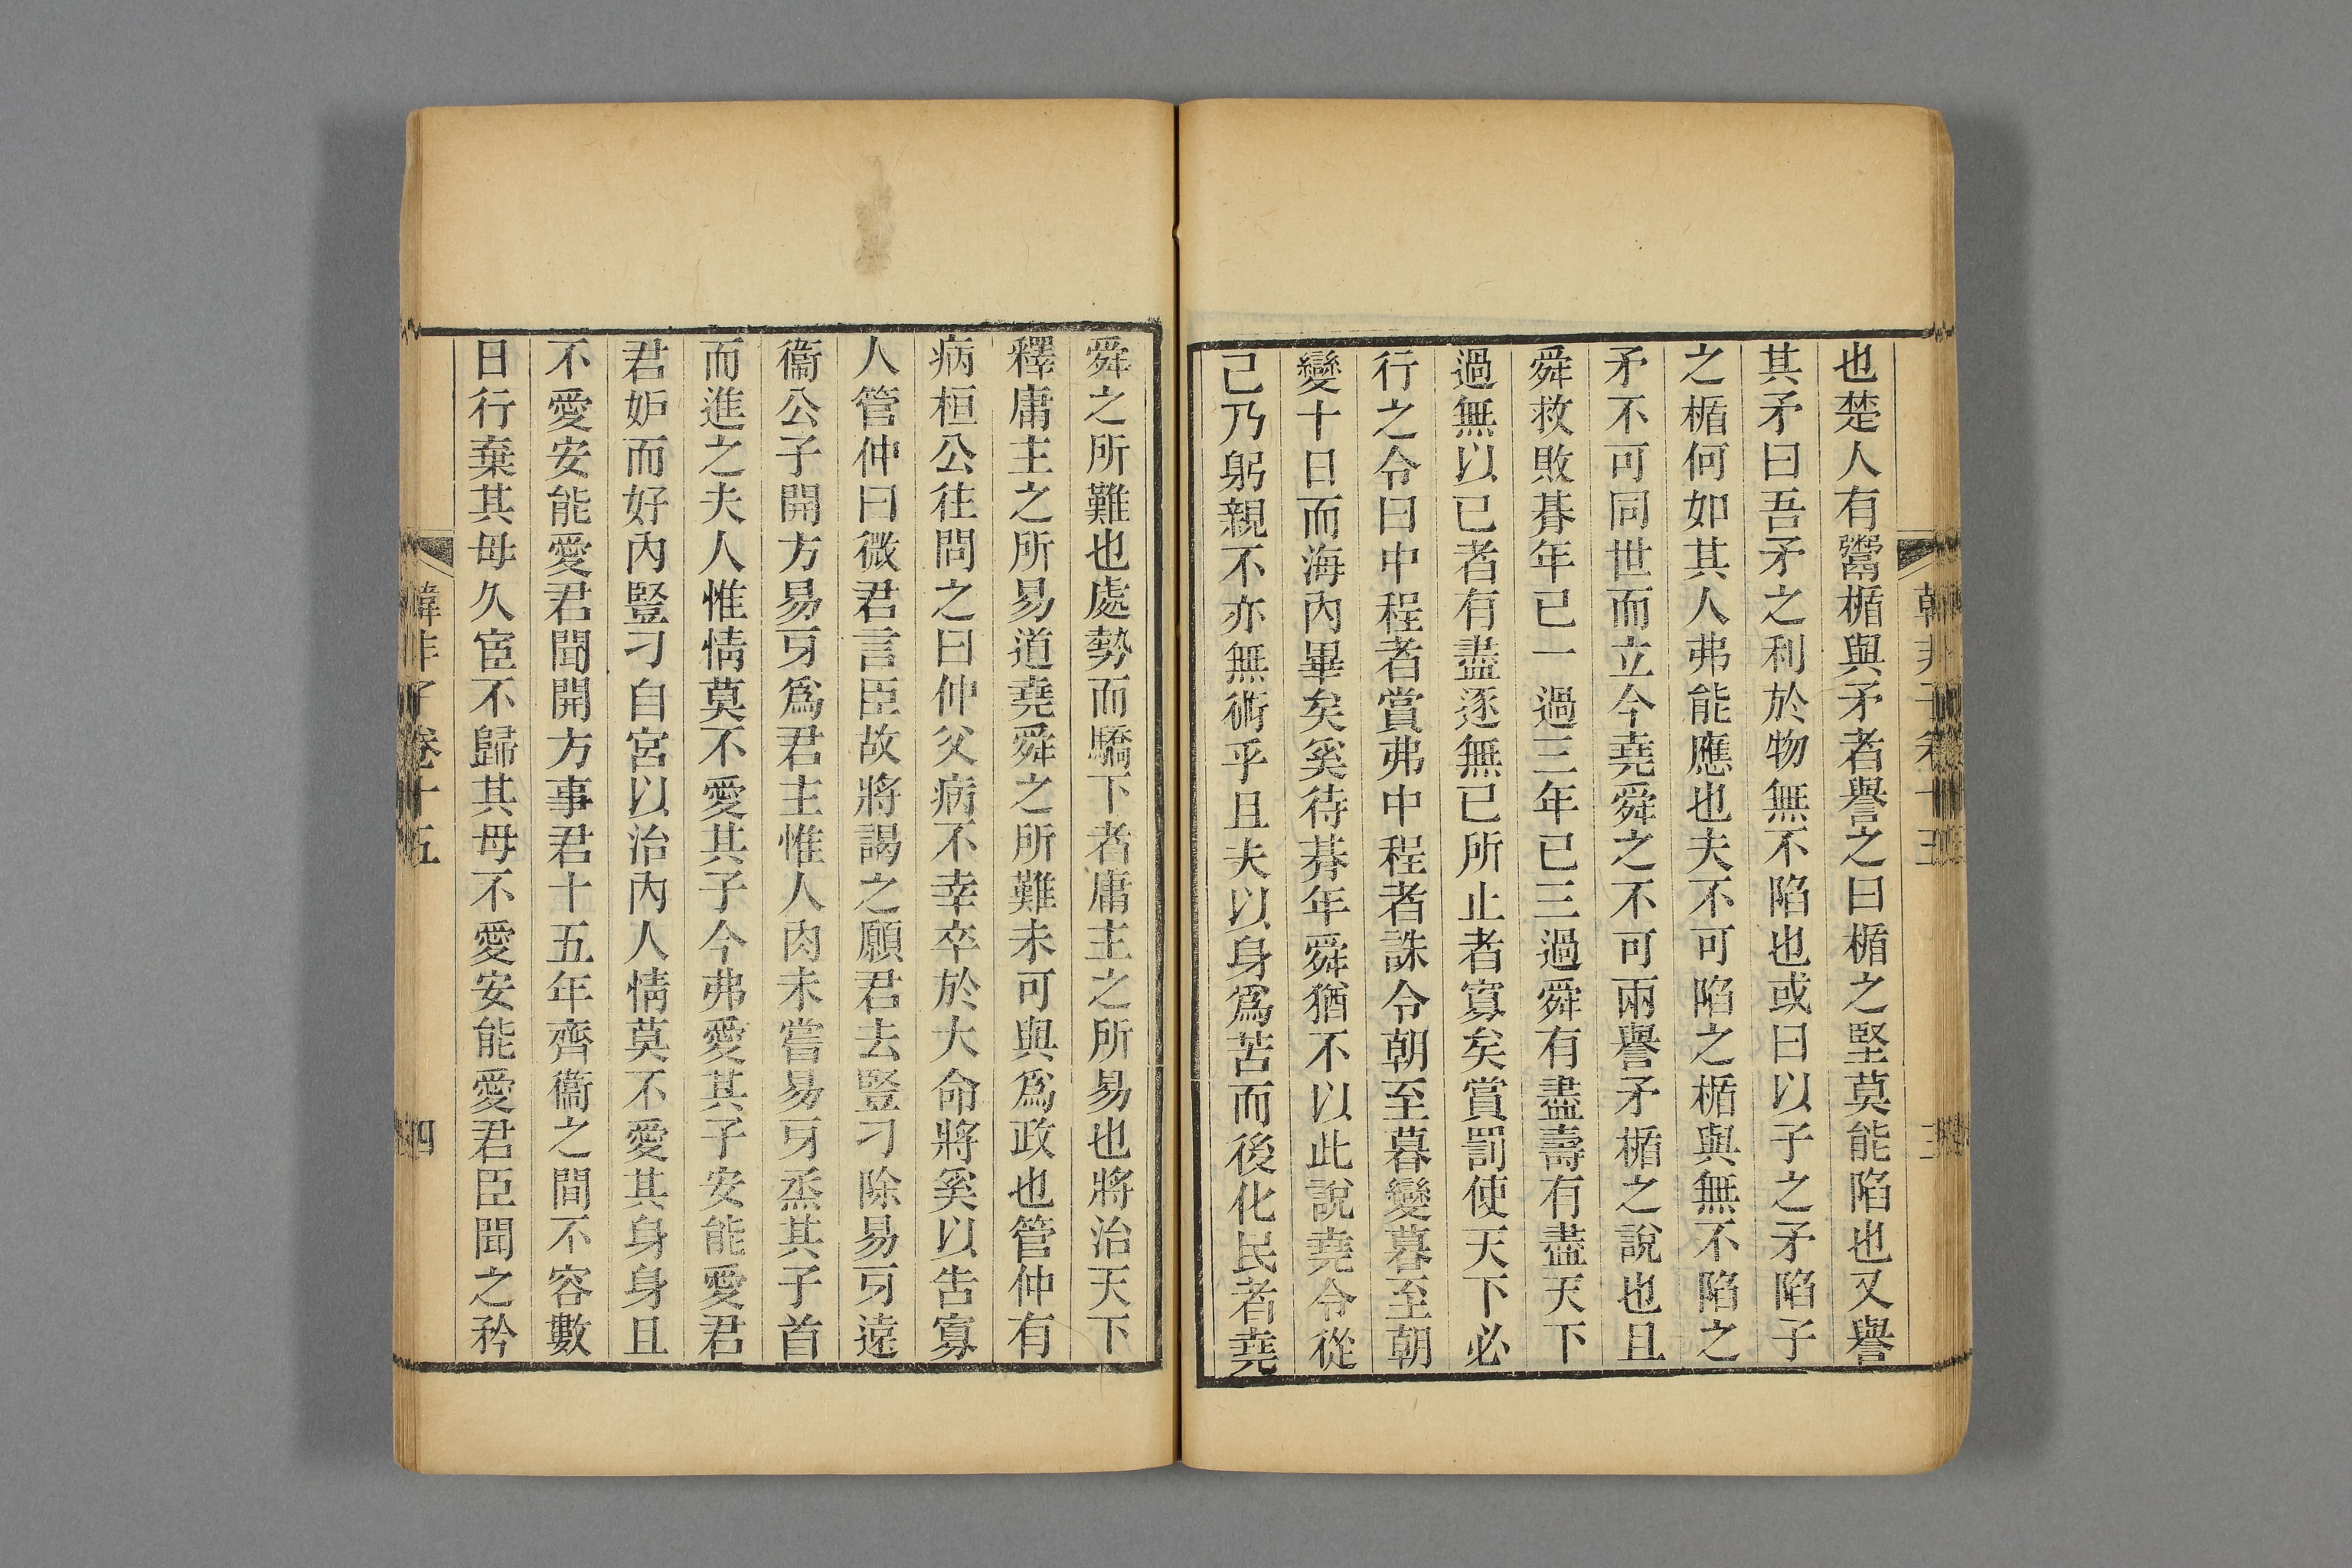 也楚人有鬻楯與矛者譽之曰楯之堅莫能陷也又譽
其矛曰吾矛之利於物無不陷也或曰以子之矛陷子
之楯何如其人弗能應也夫不可陷之楯與無不陷之
矛不可同世而立今堯舜之不可兩譽矛楯之說也且
舜救敗朞年已一過三年已三過舜有盡壽有盡天下
過無以已者有盡逐無已所止者寡矣賞罰使天下必
行之令曰中程者賞弗中程者誅令朝至暮變暮至朝
變十日而海內畢矣奚待朞年舜猶不以此說堯令從
己乃躬親不亦無術乎且夫以身爲苦而後化民者堯
舜之所難也處勢而驕下者庸主之所易也將治天下
釋庸主之所易道堯舜之所難未可與爲政也管仲有
病桓公往問之曰仲父病不幸卒於大命將奚以告寡
人管仲曰微君言臣故將謁之願君去豎刁除易牙遠
衞公子開方易牙爲君主惟人肉未嘗易牙烝其子首
而進之夫人惟情莫不愛其子今弗愛其子安能愛君
君妒而好內豎刁自宮以治內人情莫不愛其身身且
不愛安能愛君聞開方事君十五年齊衞之間不容數
日行棄其母久宦不歸其母不愛安能愛君臣聞之矜
韓非子卷十五
四